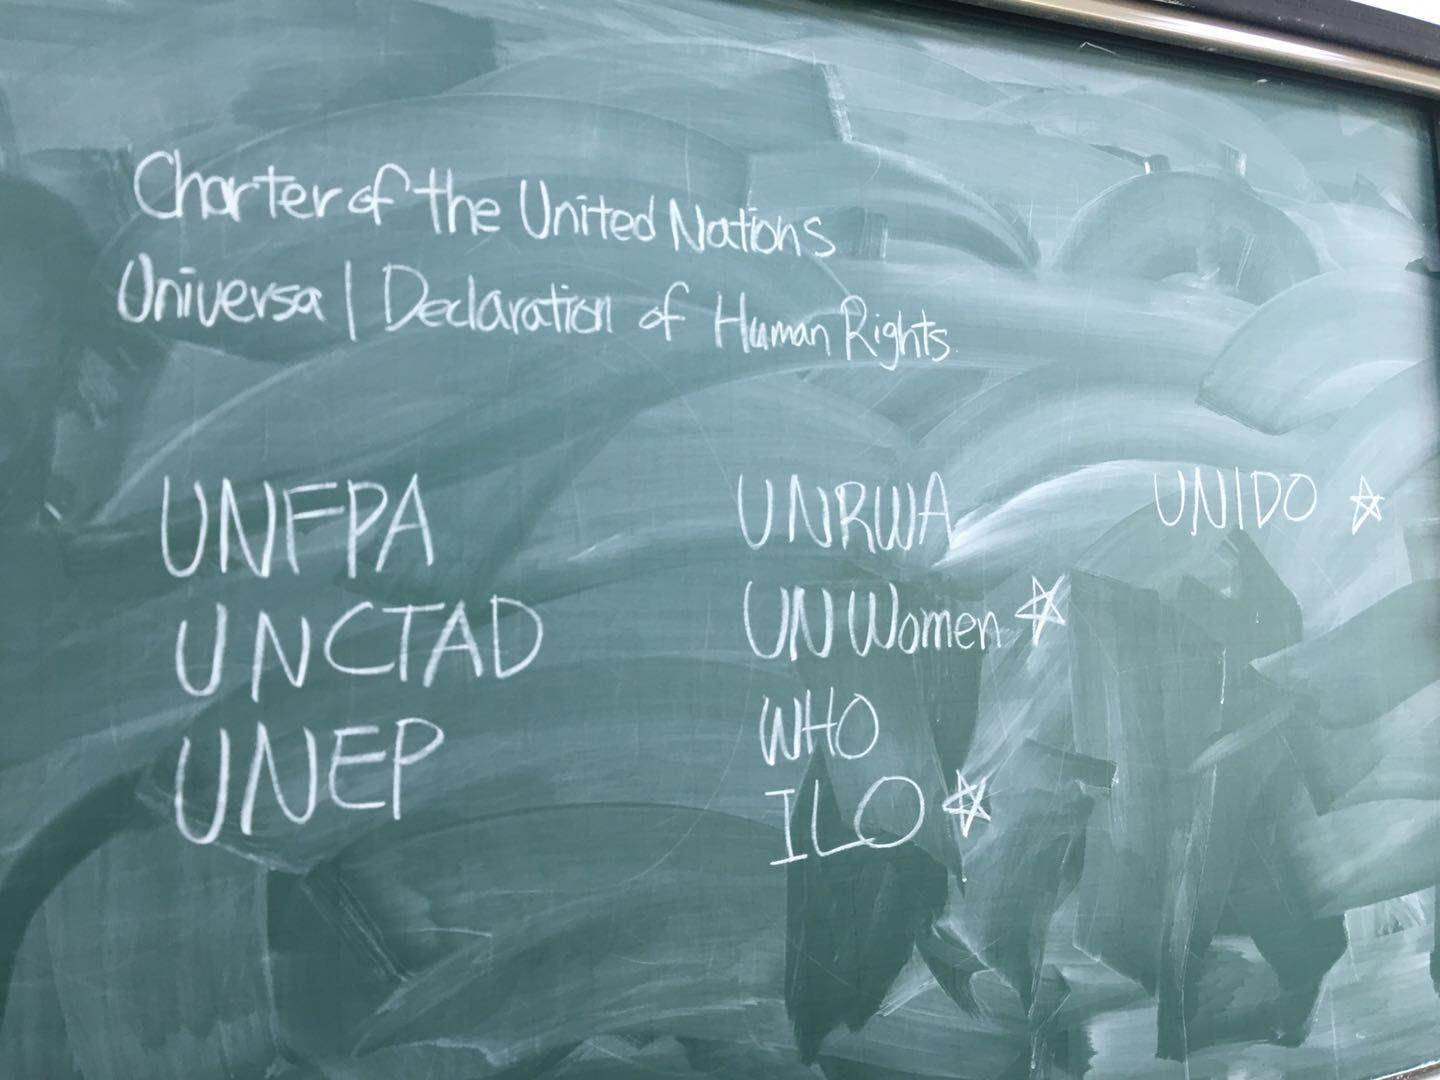 Charter of the United Nations
Universal Declaration of Human Rights
UNFPA
UNCTAD
UNEP
UNRWA
UN Women ☆
WHO
ILO ☆
UNIDO ☆